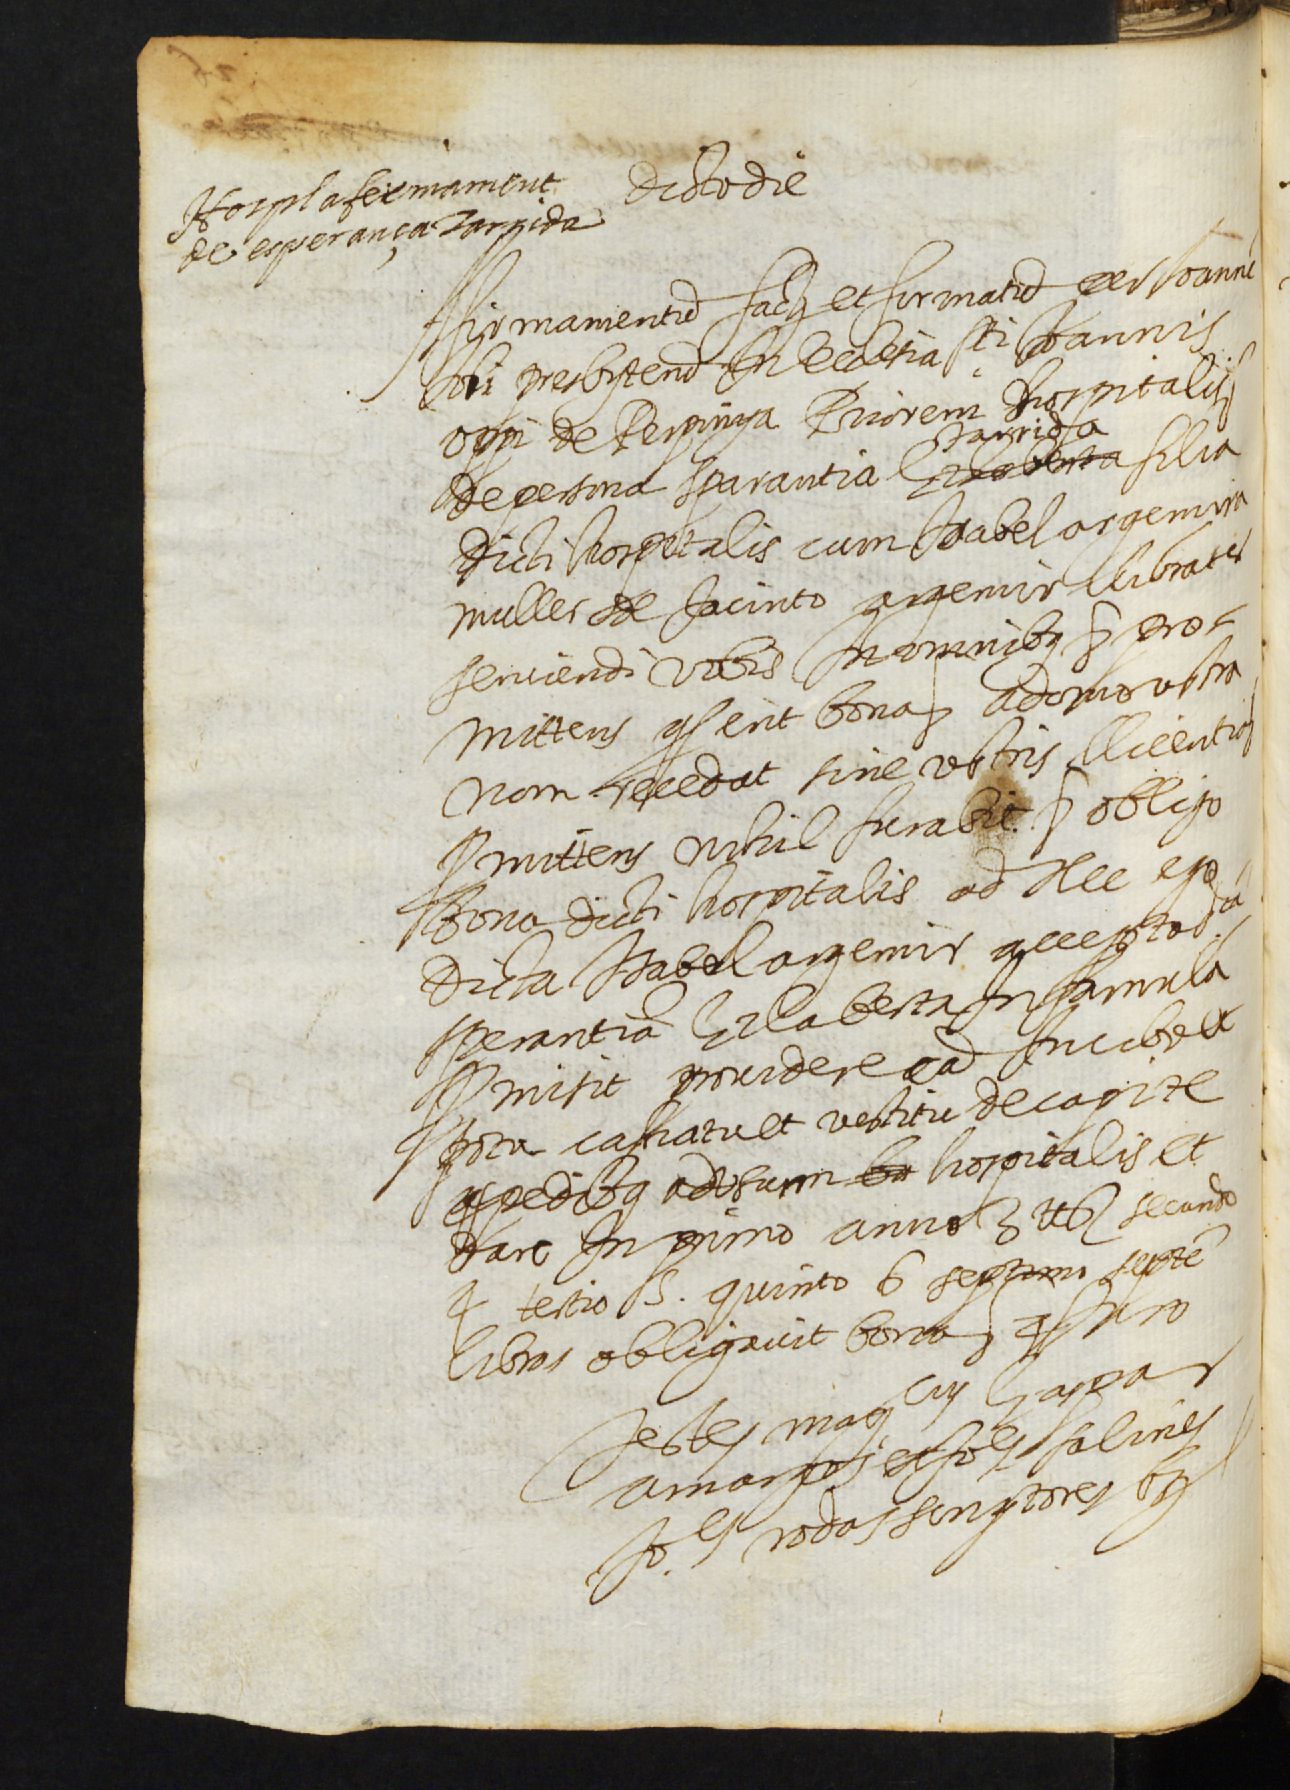 Hospl afermament
de esperança Tarrida
Dicto die
Affirmamentū fact et firmatū per Joannē
presbyterū In Ecclesia sti Joannis
oppi de Perpinya Priorem hospitalis
de persona sparantia Tarrida filia
dicti hospitalis cum Isabel argemira
muller de Jacinto argemir llibrater
serviendi vobis In omnibq pro=
mittens q erit bona a domo vestra
non recedat sine vestris llicentis
Pmittens nihil furabit obligo
Bona dicti hospitalis ad Hec ego
dicta Isabel argemir accepto dictā
sperantiā In famula
Pmisit providere ead In cibo et
potu calsatu et vestitu de capite
pedibq ad usum hospitalis et
dare In primo anno 3 secundo
4 tertio 5. quinto 6 septē
libras obligavit bona Juro
Testes magcus Gaspar
amargos et Jos salines
Jos rodas scriptores